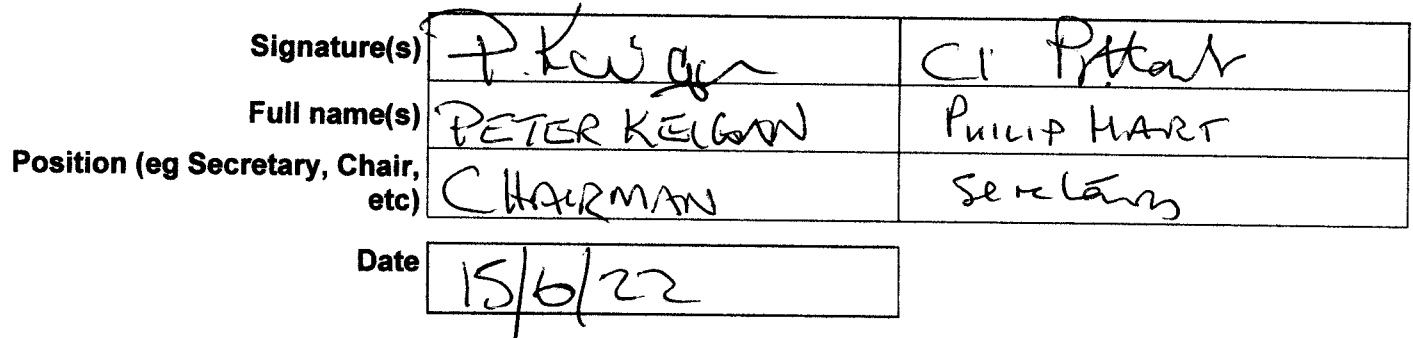 Signature(s)
Full name(s) PETER PHILIP HART
Position (eg Secretary, Chair,
etc) CHAIRMAN Secretary
Date 15/6/22